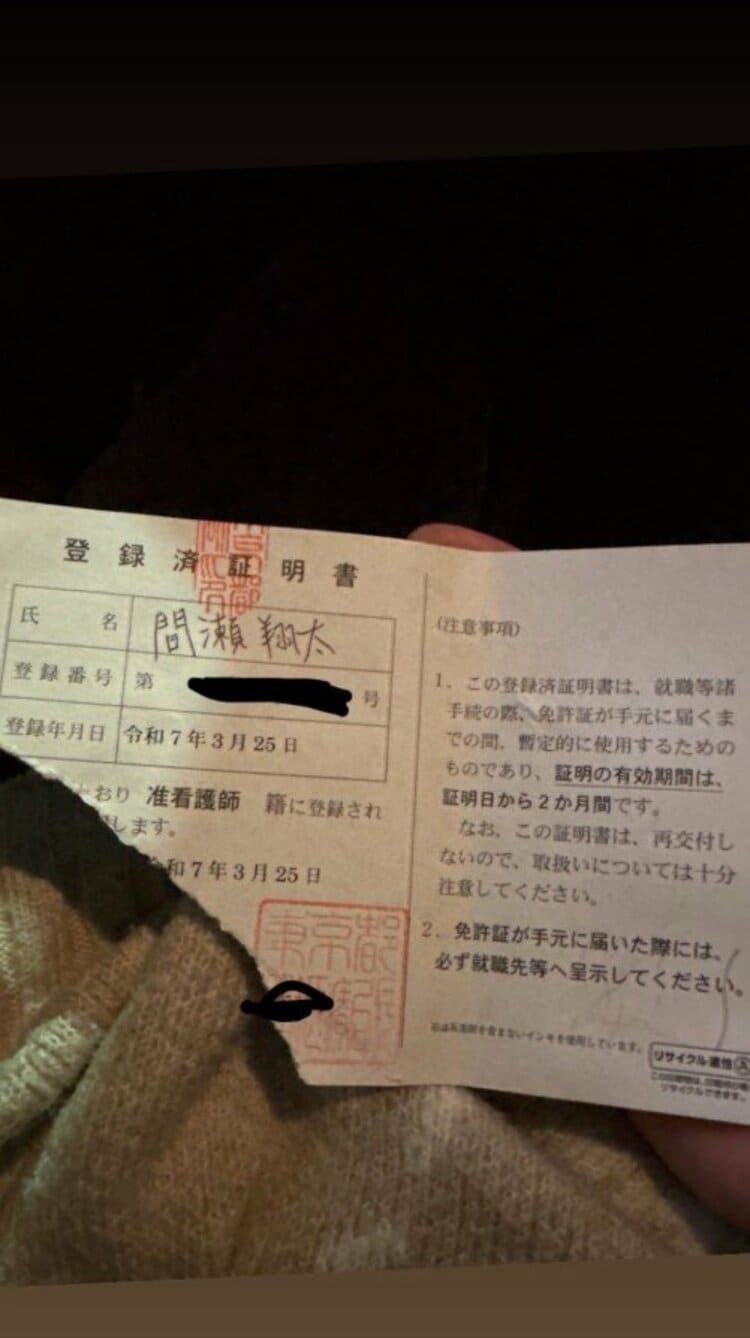 登録済証明書
氏名 間瀬翔太
登録番号 第 号
登録年月日 令和7年3月25日
とおり 准看護師 籍に登録され
します。
和7年3月25日
東京都
(注意事項)
1. この登録済証明書は、就職等諸
手続の際、免許証が手元に届くま
での間、暫定的に使用するための
ものであり、証明の有効期間は、
証明日から2か月間です。
なお、この証明書は、再交付し
ないので、取扱いについては十分
注意してください。
2. 免許証が手元に届いた際には、
必ず就職先等へ呈示してください。
を含まないインキを使用しています。
リサイクル適性Ⓐ
この印刷物は、印刷用の紙へ
リサイクルできます。